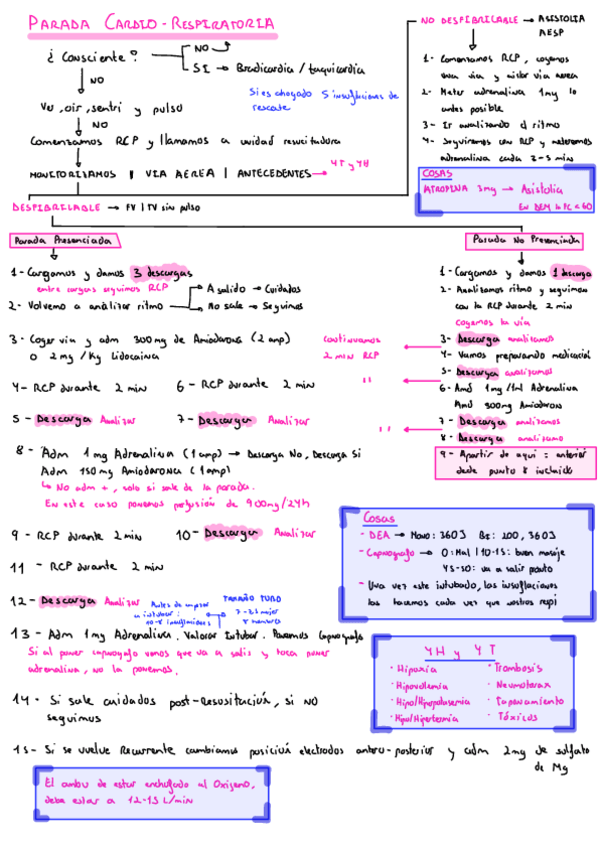 PARADA CARDIO-RESPIRATORIA
¿Consciente?
NO
SI → Bradicardia / taquicardia
NO
Si es ahogado 5 insuflaciones de rescate
Ver, oir, sentri y pulso
NO
Comenzamos RCP y llamamos a unidad resucitadora
MONITORIZAMOS | VIA AEREA | ANTECEDENTES → 4T y 4H
DESFIBRILABLE → FV | TV sin pulso
NO DESFIBRILABLE → ASISTOLIA
AESP
1- Comenzamos RCP, cogemos
una via y aislar via aerea
2- Meter adrenalina 1mg lo
antes posible
3- Ir analizando el ritmo
4- Seguiremos con RCP y meteremos
adrenalina cada 3-5 min
COSAS
ATROPINA 3mg → Asistolia
En DEM la FC < 60
Parada Presenciada
1- Cargamos y damos 3 descargas
entre cargas seguimos RCP
2- Volvemo a analizar ritmo
A salido → Cuidados
No sale → Seguimos
3- Coger via y adm 300mg de Amiodarona (2 amp)
o 2mg/Kg Lidocaina
4- RCP durante 2 min
5- Descarga Analizar
6- RCP durante 2 min
7- Descarga Analizar
8- Adm 1mg Adrenalina (1 amp) → Descarga No, Descarga Si
Adm 150mg Amiodarona (1 amp)
↳ No adm +, solo si sale de la parada.
En este caso ponemos perfusión de 900mg/24h
9- RCP durante 2 min
10- Descarga Analizar
11- RCP durante 2 min
12- Descarga Analizar
Antes de empezar
a intubar:
insuflaciones
TAMAÑO TUBO
7-7.5 mujer
8 hombres
13- Adm 1mg Adrenalina. Valorar Intubar. Ponemos Capnografo
Si al poner capnografo vemos que va a salir y toca poner
adrenalina, no la ponemos.
14- Si sale cuidados post-Resusitaciuá, si NO
seguimos
15- Si se vuelve Recurrente cambiamos posiciuá electrodos antero-posterior y adm 2mg de sulfato
de Mg
El ambu de estar enchufado al Oxigeno,
debe estar a 12-15 L/min
Parada No Presenciada
1- Cargamos y damos 1 descarga
2- Analizamos ritmo y seguimos
con la RCP durante 2 min
Cogemos la vía
3- Descarga analizamos
continuamos
2 min RCP
4- Vamos preparando medicación
5- Descarga analizamos
6- Amd 1mg/1ml Adrenalina
Amd 300mg Amiodaron
7- Descarga analizamos
8- Descarga analizamo
9- Apartir de aqui = anterior
desde punto 8 incluido
Cosas
- DEA → Mono: 360J Bi: 200, 360J
- Capnografo → 0: Mal | 10-15: buen masaje
45-50: va a salir pronto
- Una vez este intubado, las insuflaciones
las hacemos cada vez que nostros respi
4H y 4T
· Hipoxia
· Hipovolemia
· Hipo/Hipopotasemia
· Hipo/Hipertermia
· Trombosis
· Neumotorax
· Taponamiento
· Tóxicos